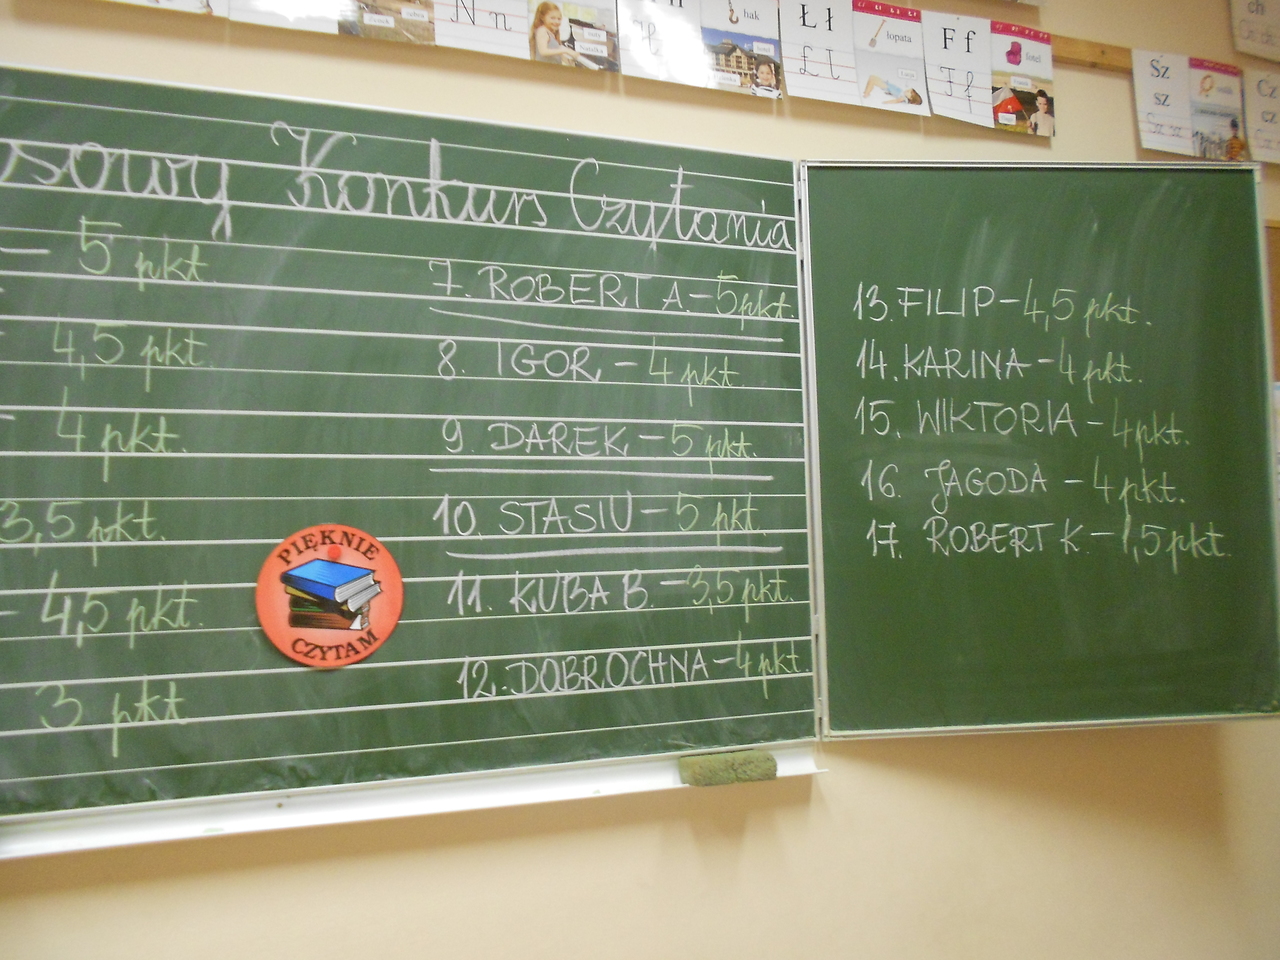 N n
hak
hotel
Ł ł
Ł l
łopata
F f
F f
fotel
Sz
sz
Sz sz
ch
sowy Konkurs Czytania
– 5 pkt.
4,5 pkt.
- 4 pkt.
3,5 pkt.
- 4,5 pkt.
3 pkt
PIĘKNIE
CZYTAM
7. ROBERT A – 5pkt.
8. IGOR – 4 pkt.
9. DAREK – 5 pkt.
10. STASIU – 5 pkt.
11. KUBA B. – 3,5 pkt.
12. DOBROCHNA – 4 pkt.
13. FILIP – 4,5 pkt.
14. KARINA – 4 pkt.
15. WIKTORIA – 4pkt.
16. JAGODA – 4 pkt.
17. ROBERT K. – 1,5pkt.